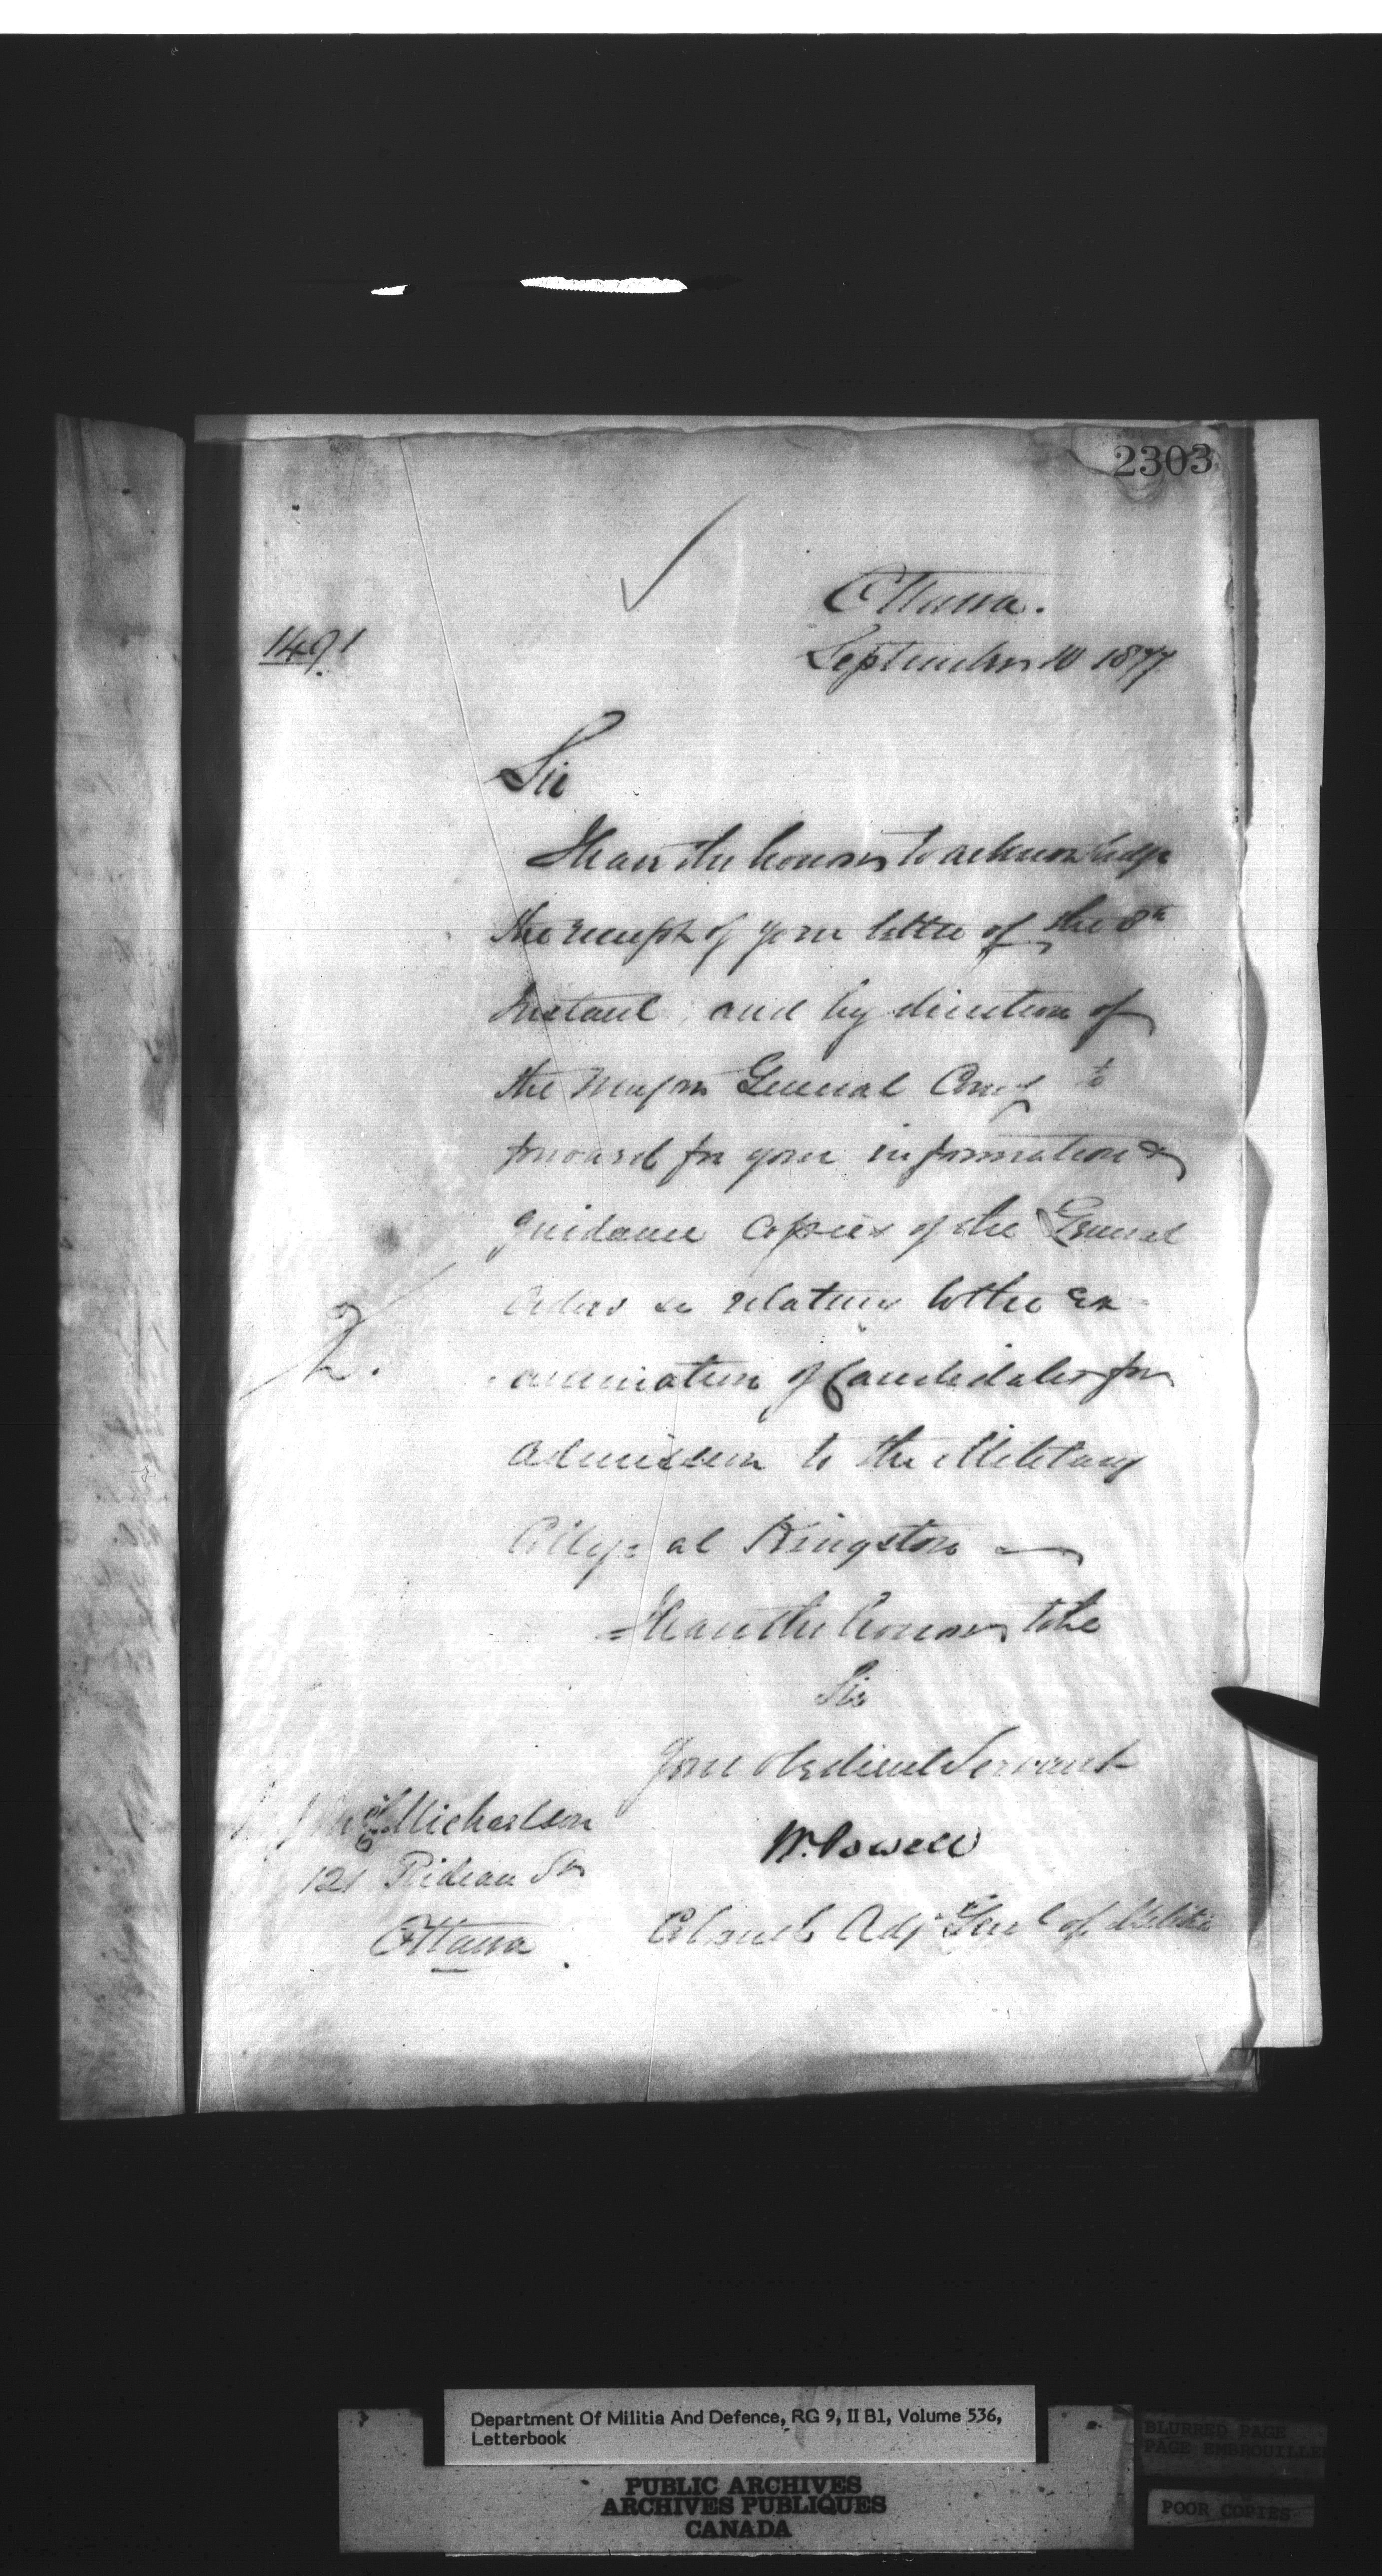 2303
Ottawa.
1491
September 10 1877
Sir
I have the honor to acknowledge
the receipt of your letter of the 8th
Instant, and by direction of
the Major General Comg to
forward for your information &
guidance Copies of the General
Orders in relation to the Ex
2.
amination of Candidates for
admission to the Military
College at Kingston
I have the honor to be
Sir
Your obedient Servant
Michaelson
W. Powell
121 Rideau St
Colonel Adjt Genl of Militia
Ottawa.
Department Of Militia And Defence, RG 9, II B1, Volume 536,
Letterbook
PUBLIC ARCHIVES
ARCHIVES PUBLIQUES
CANADA
BLURRED PAGE
PAGE EMBROUILLEE
POOR COPIES